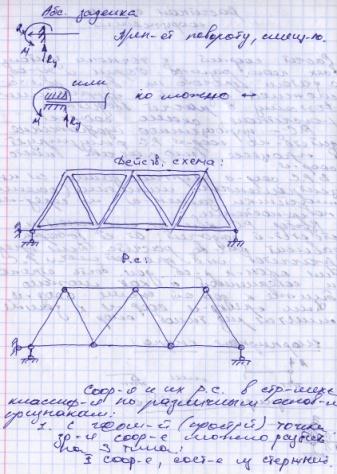 Абс. заделка
Rx
M
Ry
Преп-ет повороту, смещ-ю.
или
но можно ↔
M
Ry
Действ. схема:
Р.с:
Соор-я и их Р.с. в стр. мех.
классиф-я по различным основ-м
признакам:
1. с геом-й (простр) точки
зр-я соор-е можно разбить
на 3 типа:
I соор-е, сост-е из стержней.